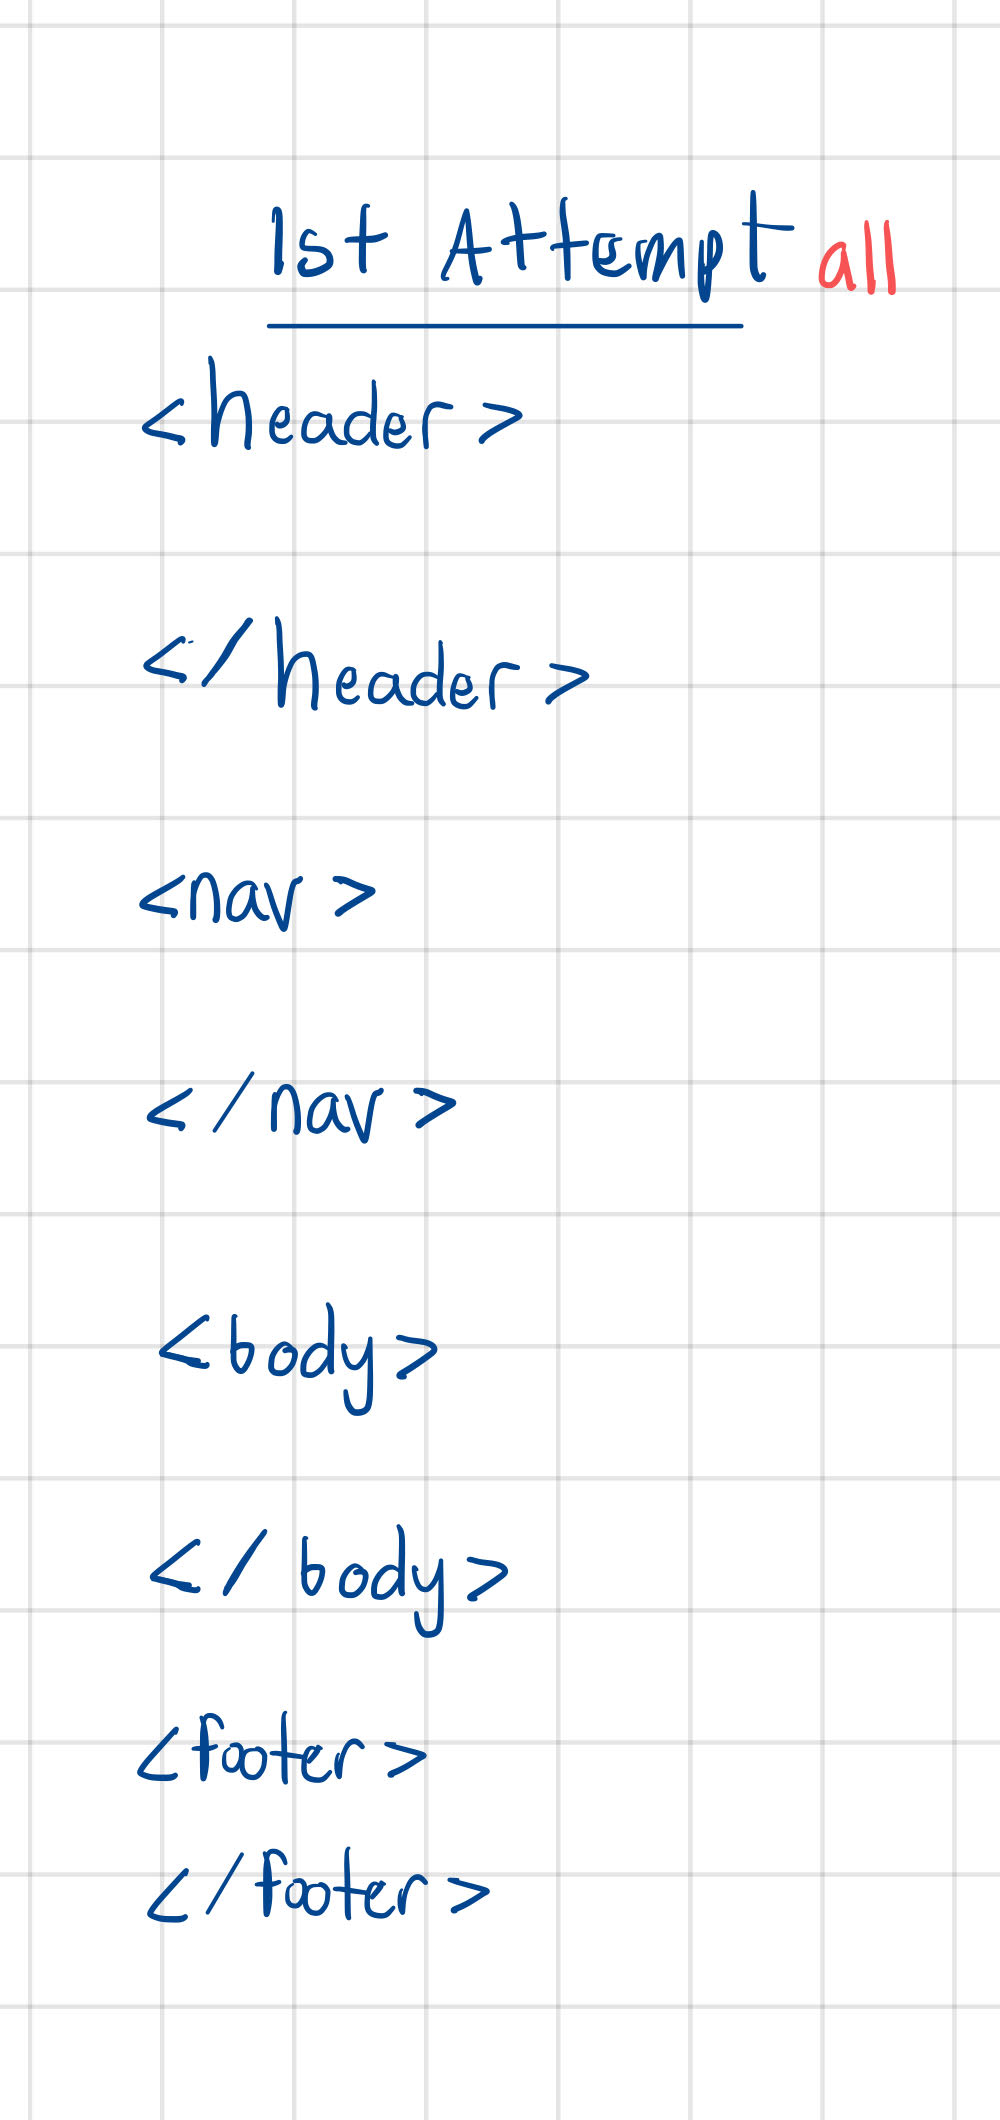 1st Attempt all
<header>
</header>
<nav>
</nav>
<body>
</body>
<footer>
</footer>